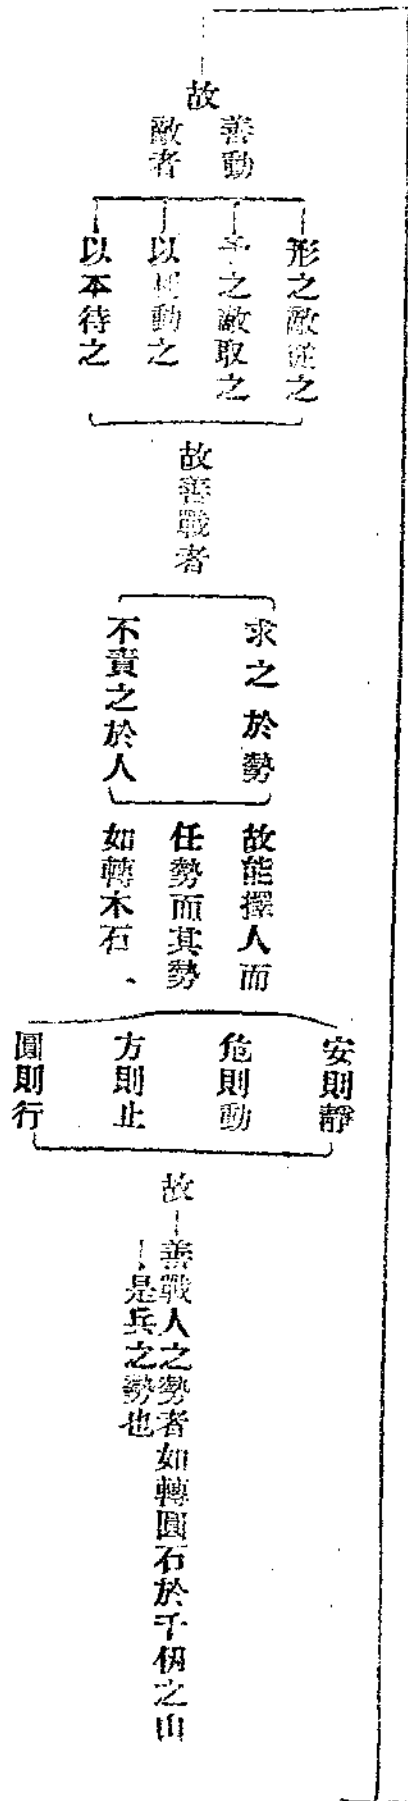 故
善動
敵者
形之敵從之
予之敵取之
以利動之
以本待之
故善戰者
求之於勢
不責之於人
故能擇人而
任勢而其勢
如轉木石、
安則靜
危則動
方則止
圓則行
故
善戰人之勢者如轉圓石於千仞之山
是兵之勢也